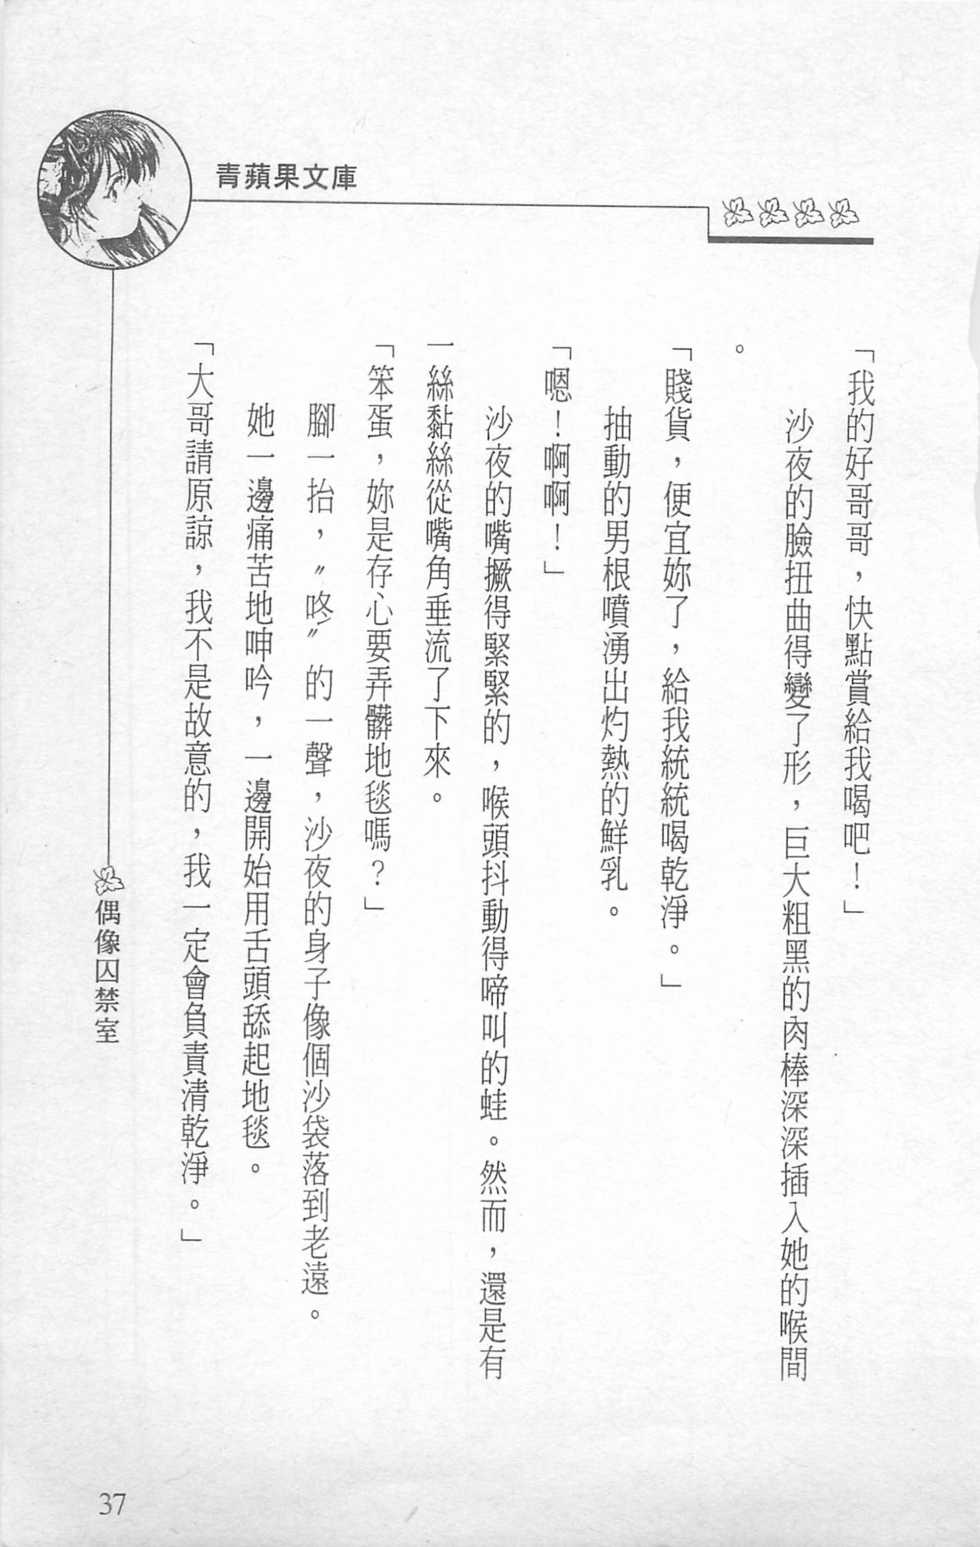 青蘋果文庫
「我的好哥哥，快點賞給我喝吧！」
沙夜的臉扭曲得變了形，巨大粗黑的肉棒深深插入她的喉間
。
「賤貨，便宜妳了，給我統統喝乾淨。」
抽動的男根噴湧出灼熱的鮮乳。
「嗯！啊啊！」
沙夜的嘴撅得緊緊的，喉頭抖動得啼叫的蛙。然而，還是有
一絲黏絲從嘴角垂流了下來。
「笨蛋，妳是存心要弄髒地毯嗎？」
腳一抬，〝咚〞的一聲，沙夜的身子像個沙袋落到老遠。
她一邊痛苦地呻吟，一邊開始用舌頭舔起地毯。
「大哥請原諒，我不是故意的，我一定會負責清乾淨。」
偶像囚禁室
37